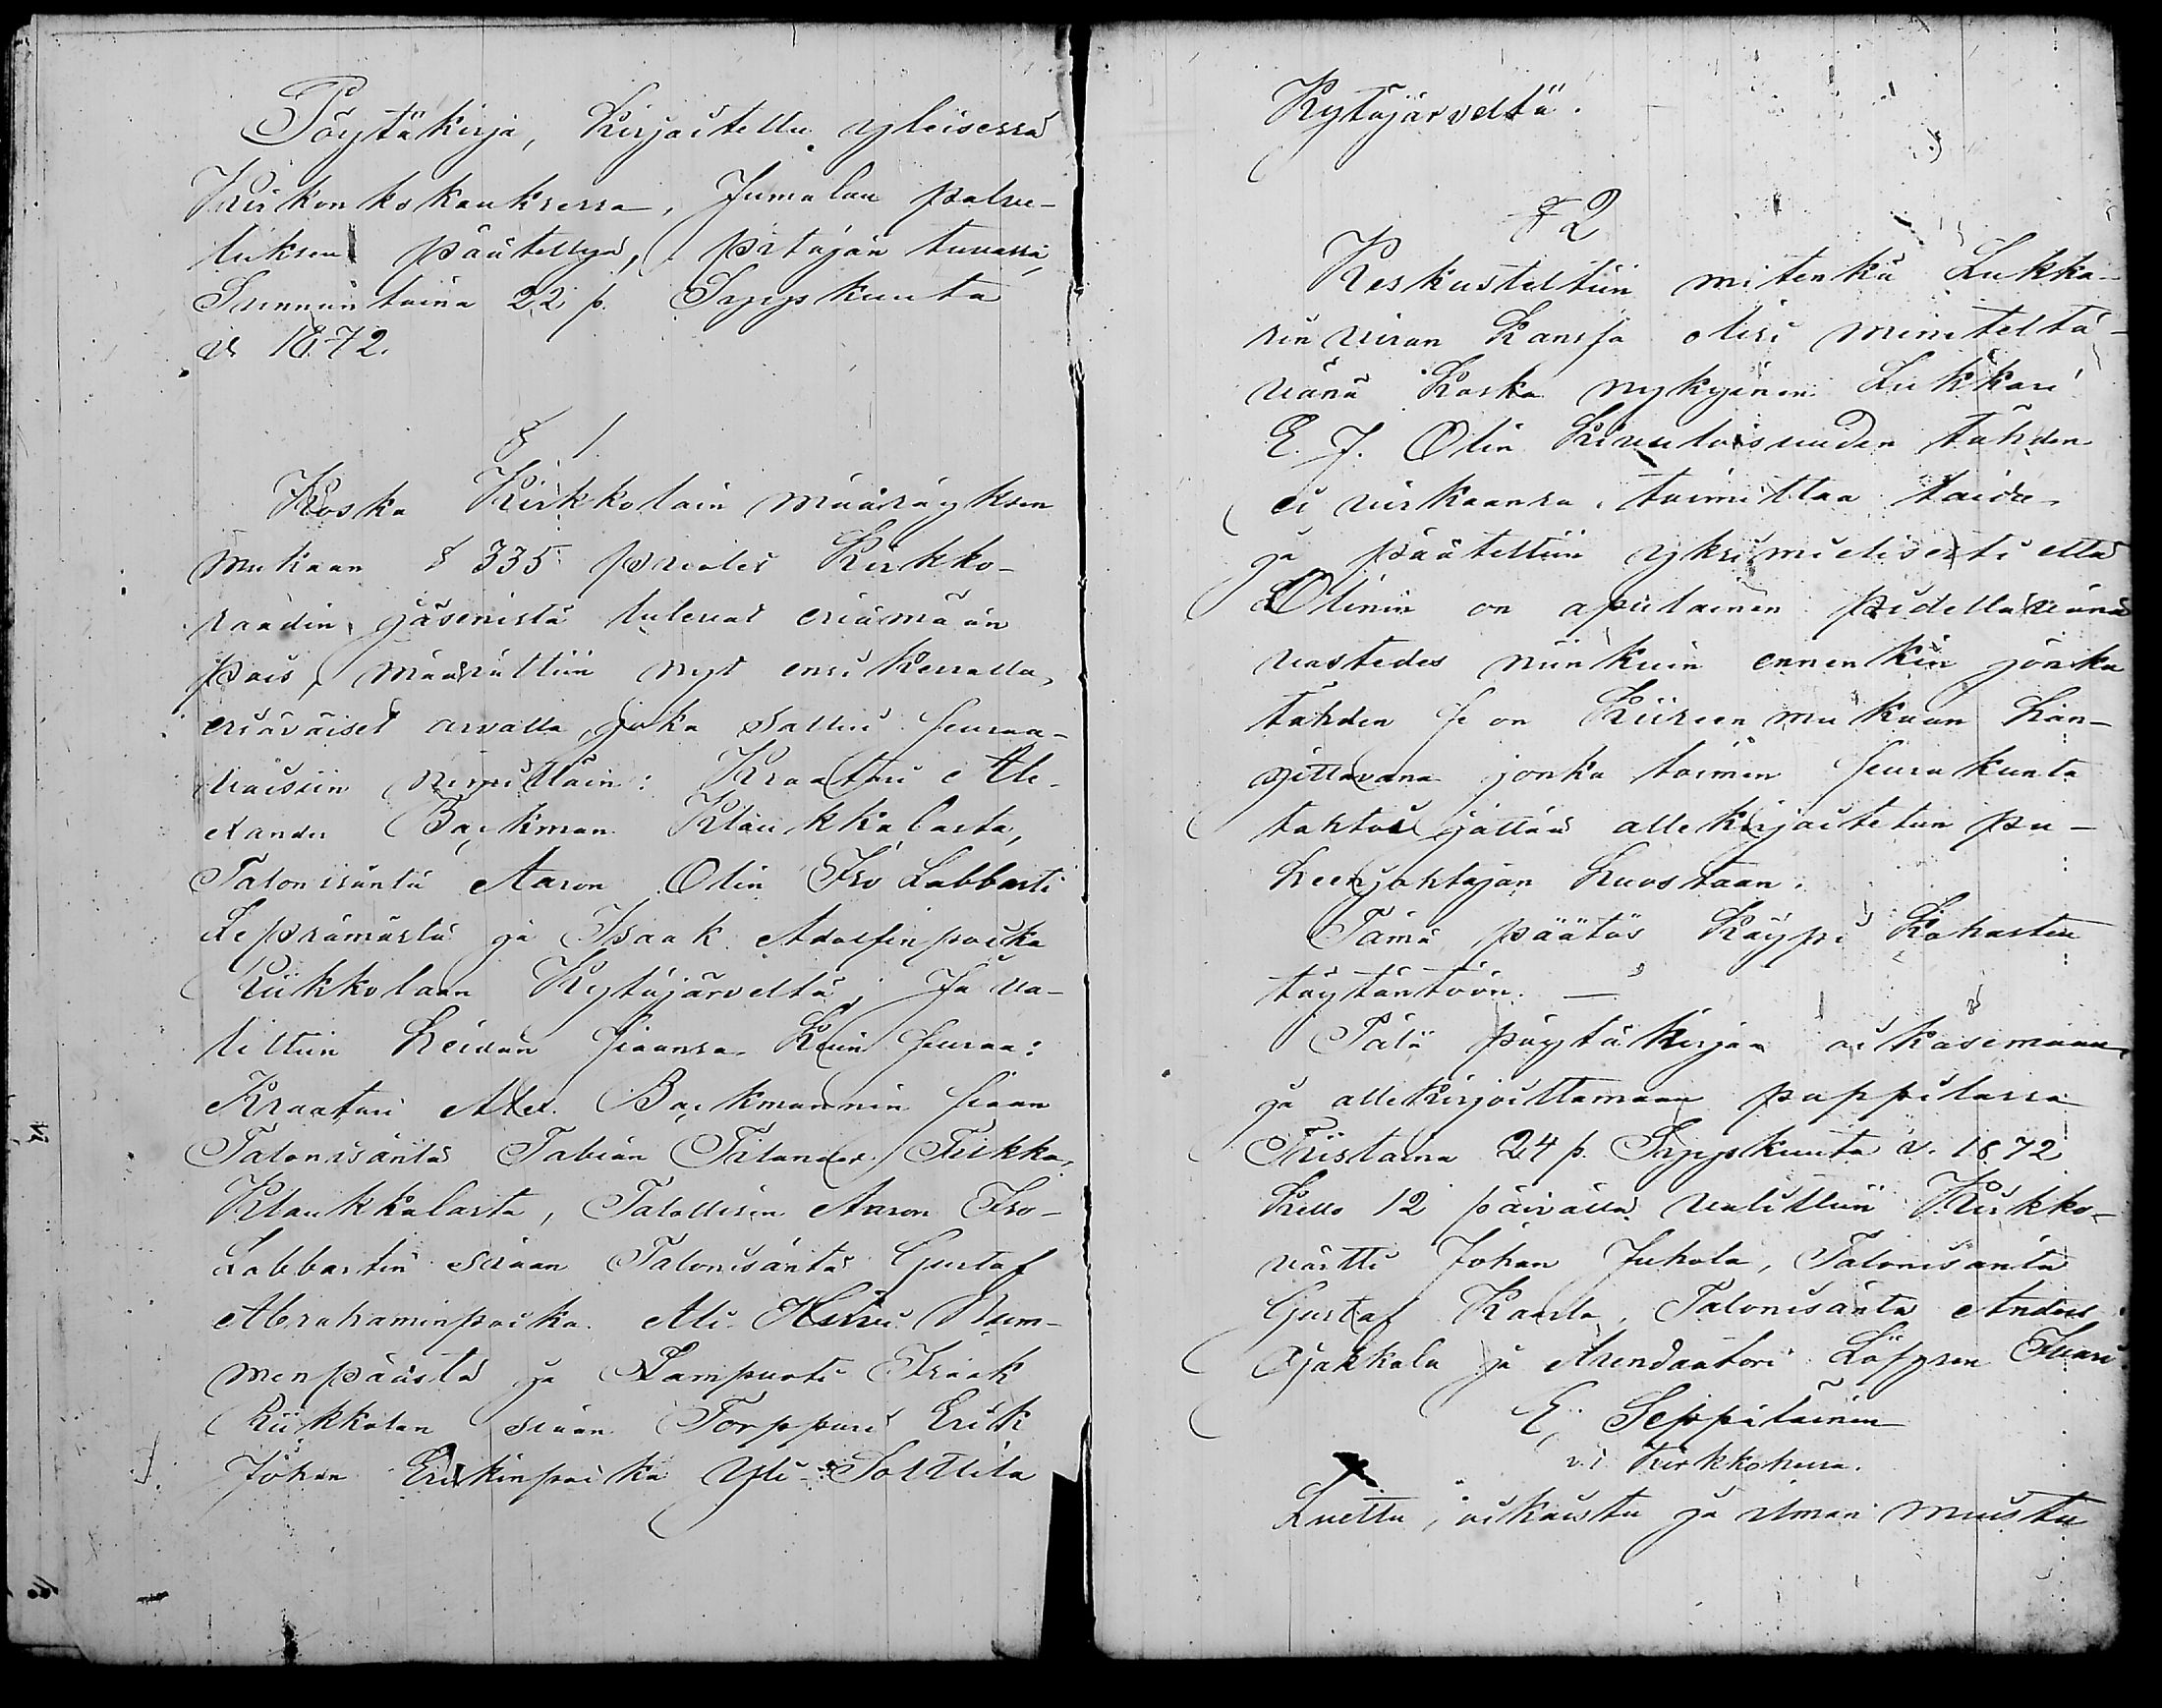 Pöytäkirja, Kirjoitettu yleisessä
Kirkonkokouksessa, Jumalan palve-
luksen päätettyä, pitäjän tuvassa,
Sunnuntaina 22 p. Syyskuuta
v 1872.
§ 1.
Koska Kirkkolain määräyksen
mukaan § 335 puolet Kirkko-
raadin jäsenistä tulevat eriämään
pois, määrättiin nyt ensi kerralla,
eriäväiset arvalla, joka sattui seuraa-
vaisiin nimittäin: Kraatari Ale-
xander Backman Klaukkalasta,
Talonisäntä Aaron Olin Iso Labbarti
Lepsämästä ja Isaak Adolfinpoika
Kiikkolaan Kytäjärveltä; Ja va-
littiin heidän siaansa Kuin seuraa:
Kraatari Alex. Backmannin siaan
Talonisäntä Fabian Tilander Tiikka,
Klaukkalasta, Talollisen Aaron Iso-
Labbartin siaan Talonisäntä Gustaf
Abrahaminpoika Ali-Hirvi Num-
menpäästä ja Lampuoti Isaak
Kiikkolan siaan Torppari Erik
Johan Erikinpoika Yli-Solttila
Kytäjärveltä.
§ 2
Keskusteltiin mitenkä Lukka-
rin viran Kanssa olisi meniteltä-
vänä Koska nykyinen Lukkari
E. J. Olin Kivuloisuuden tähden
ei virkaansa toimittaa taida,
ja päätettiin yksimielisesti että
Olinin on apulainen pidettävänä
vastedes niinkuin ennenkin jonka
tähden se on Kiireen mukaan han-
kittavana jonka toimen seurakunta
tahtoi jättää allekirjoitetun pu-
heenjohtajan huostaan.
Tämä päätös Käypi Kohasten
täytäntöön. —
Tätä pöytäkirjaa oikasemaan
ja allekirjoittamaan pappilassa
Tiistaina 24 p. Syyskuuta v. 1872
Kello 12 päivällä valittiin Kirkko-
värtti Johan Juhola, Talonisäntä
Gustaf Kaarla, Talonisäntä Anders
Ojakkala ja Arendaatori Löfgren
E. Seppäläinen
v.t. Kirkkoherra.
Luettu, oikaistu ja ilman muistu